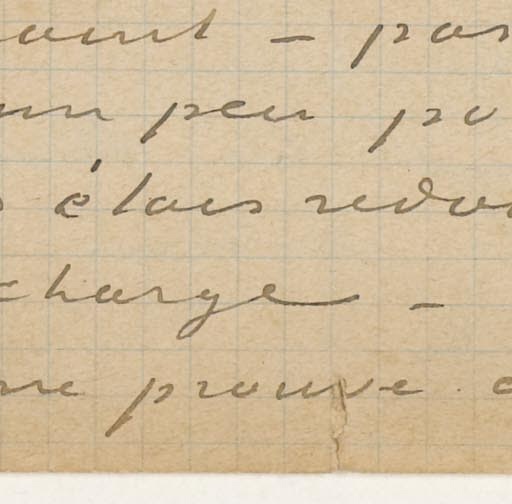 — pas
un peu po
étais redou
charge —
me prouve